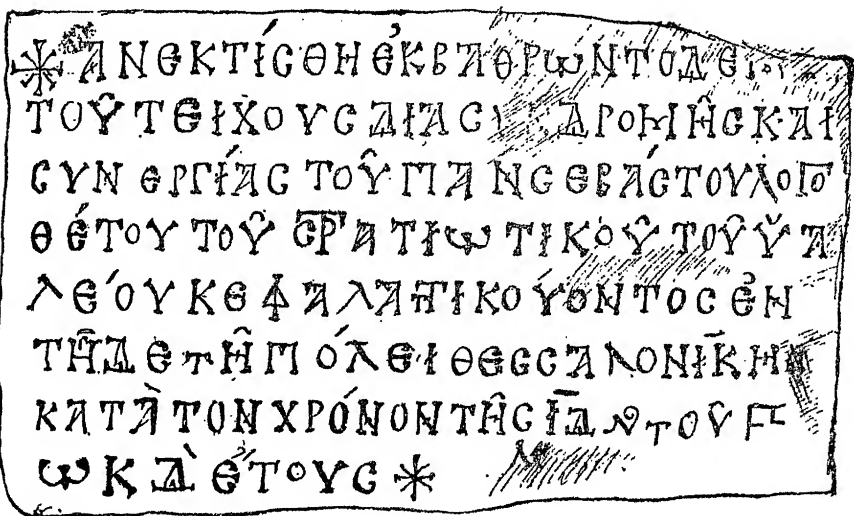 ※ ἈΝΕΚΤΊϹΘΗ ἘΚ ΒΆΘΡΩΝ ΤΟΔΕ
ΤΟΥ͂ ΤΕΙΧΟΥϹ ΔΙΑ Ϲ ΔΡΟΜΗ͂Ϲ ΚΑΙ
ϹΥΝΕΡΓΊΑϹ ΤΟΥ͂ ΠΑΝϹΕΒΆϹΤΟΥ ΛΟΓΟ
ΘΈΤΟΥ ΤΟΥ͂ ϹΤΡΑΤΙΩΤΙΚΟΥ͂ ΤΟΥ͂ ὙΑ
ΛΈΟΥ ΚΕΦΑΛΑΤΤΙΚΟΎΟΝΤΟϹ ἘΝ
ΤΗ͂ΔΕ ΤΗ͂ ΠΌΛΕΙ ΘΕϹϹΑΛΟΝΊΚΗ
ΚΑΤᾺ ΤΟΝ ΧΡΌΝΟΝ ΤΗ͂Ϲ ΙΔ ΙΝΔ ΤΟΥ͂ Ϛ
ΩΚΔ ἜΤΟΥϹ ※